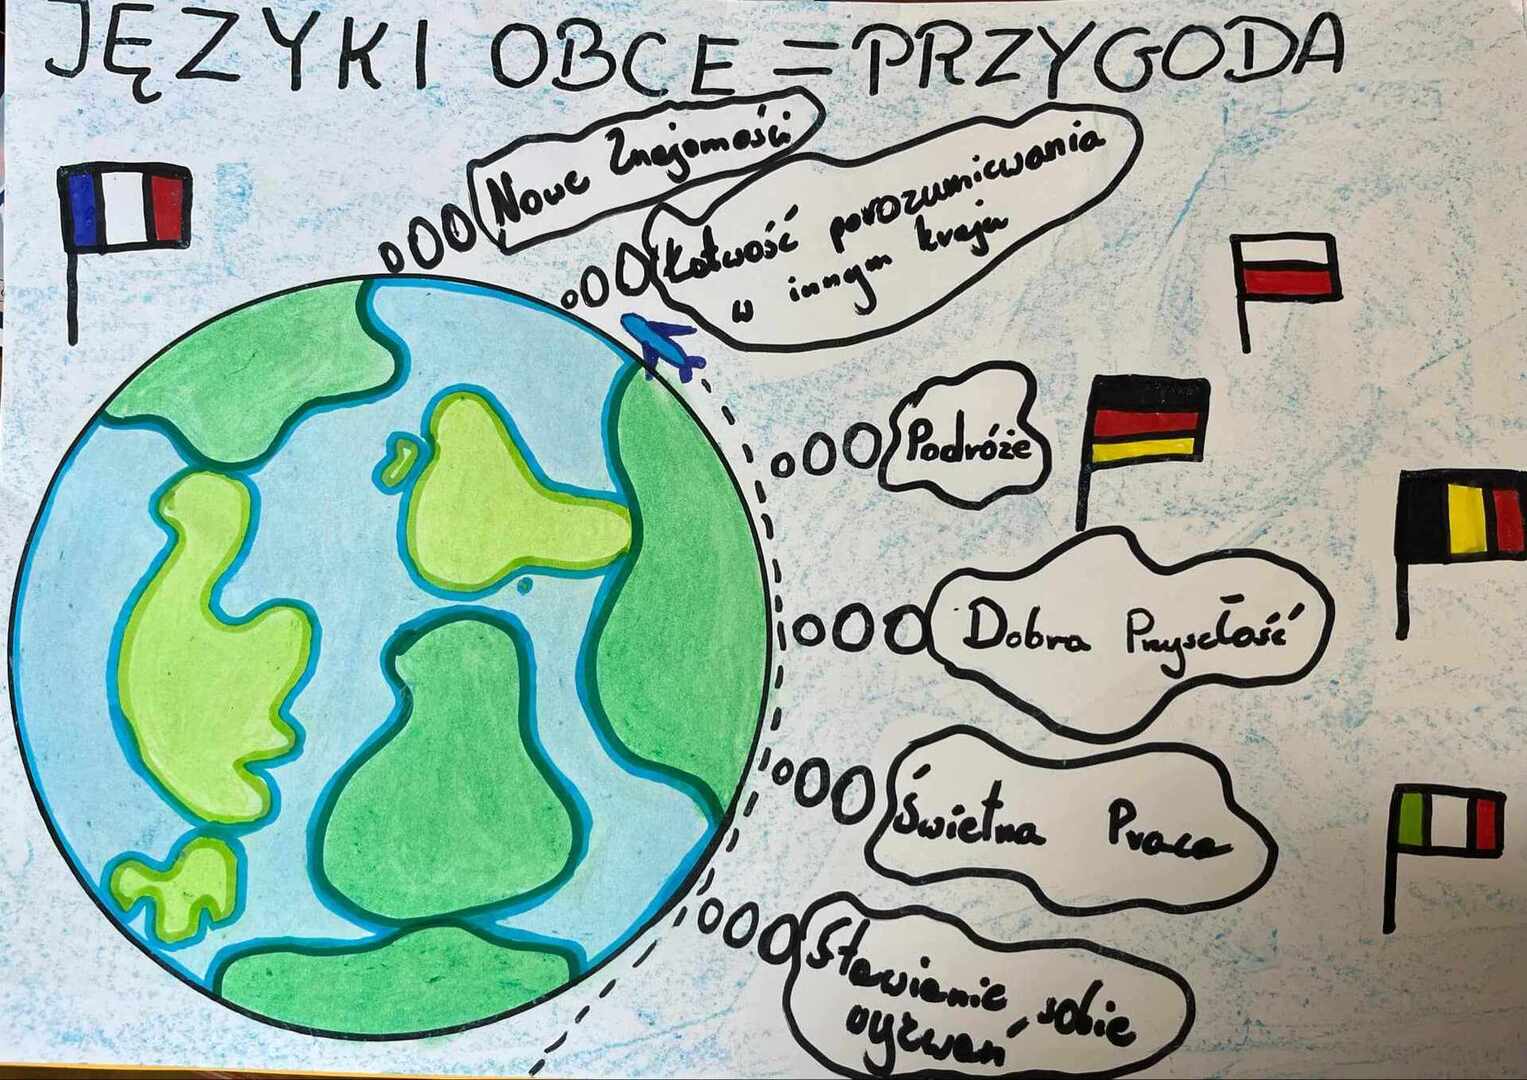 JĘZYKI OBCE = PRZYGODA
Nowe Znajomości
Łatwość porozumiewania
w innym kraju
Podróże
Dobra Przyszłość
Świetna Praca
Stawianie sobie
wyzwań